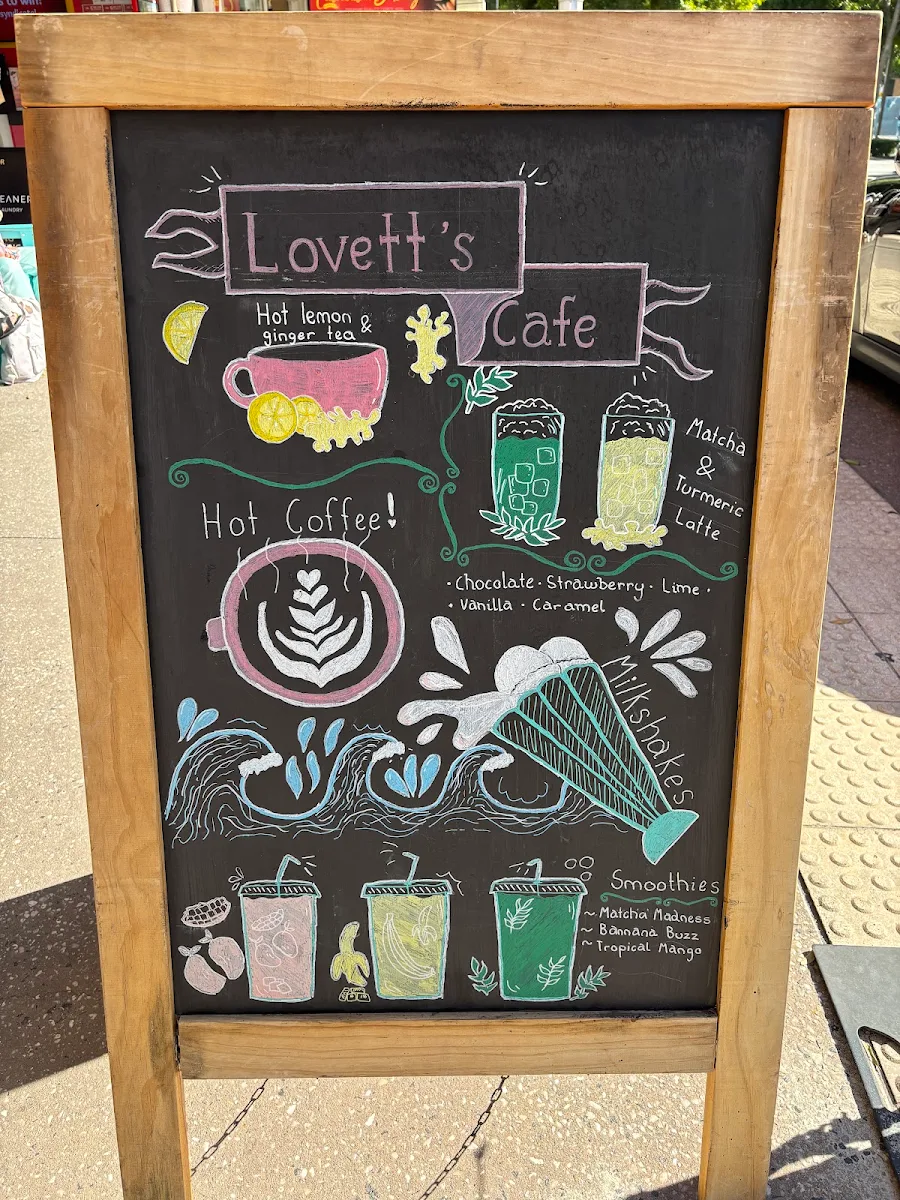 Lovett's
Cafe
Hot lemon &
ginger tea
Matcha
&
Turmeric
Latte
Hot Coffee!
· Chocolate · Strawberry · Lime ·
· Vanilla · Caramel
Milkshakes
Smoothies
~ Matcha Madness
~ Bannana Buzz
~ Tropical Mango